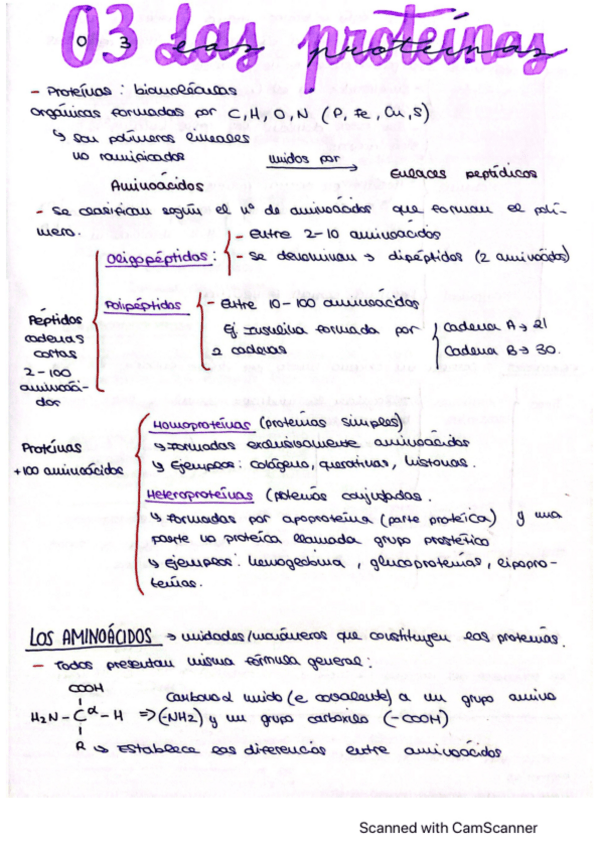 03 Las proteínas
- Proteínas: biomoléculas
orgánicas formadas por C, H, O, N (P, Fe, Cu, S)
↳ son polímeros lineales
no ramificados unidos por →
Aminoácidos Enlaces peptídicos
- Se clasifican según el nº de aminoácidos que forman el polí-
mero.
Oligopéptidos: - Entre 2-10 aminoácidos
- Se denominan → dipéptidos (2 aminoácidos)
Péptidos
cadenas
cortas
2-100
aminoáci-
dos
Polipéptidos - Entre 10-100 aminoácidos
Ej insulina formada por
2 cadenas
cadena A → 21
Cadena B → 30.
Proteínas
+100 aminoácidos
Homoproteínas (proteínas simples)
↳ Formadas exclusivamente aminoácidos
↳ Ejemplos: colágeno, queratinas, histonas.
Heteroproteínas (proteínas conjugadas.
↳ Formadas por apoproteína (parte proteica) y una
parte no proteica llamada grupo prostético
↳ Ejemplos: hemoglobina, glucoproteínas, lipopro-
teínas.
LOS AMINOÁCIDOS → unidades/monómeros que constituyen las proteínas.
- Todos presentan misma fórmula general:
COOH
H2N-Cα-H
R
Carbono α unido (e covalente) a un grupo amino
=> (-NH2) y un grupo carboxilo (-COOH)
↳ Establece las diferencias entre aminoácidos
Scanned with CamScanner